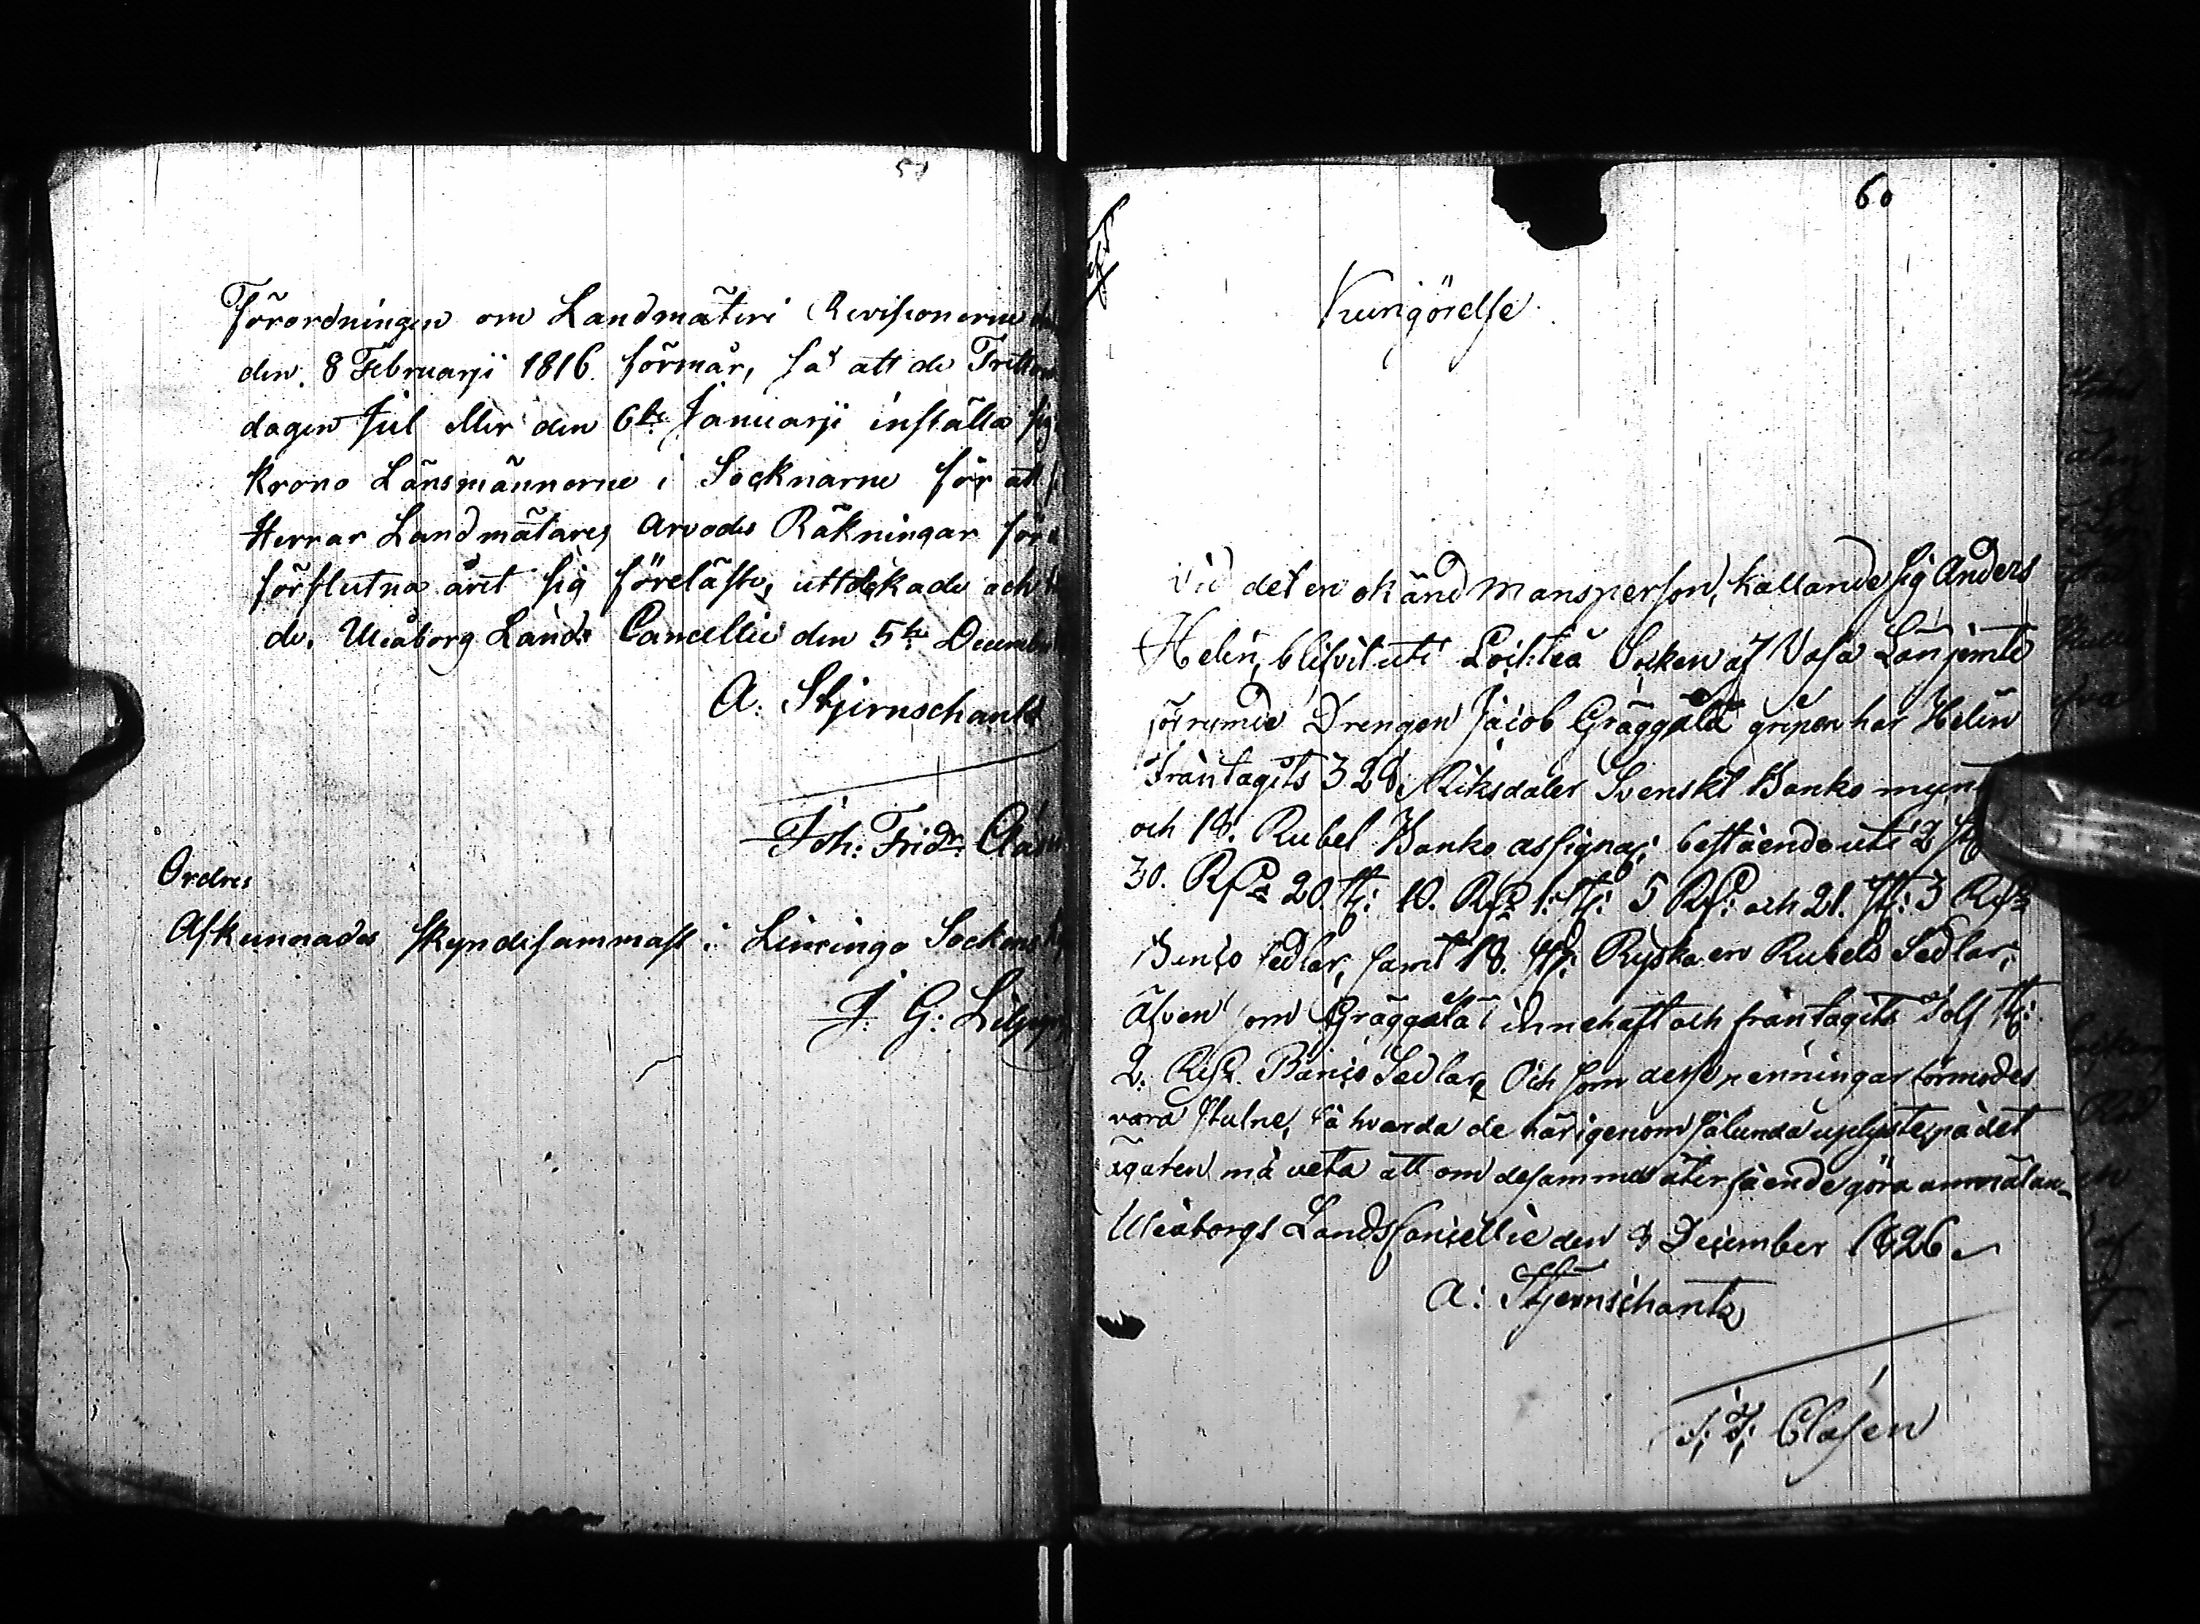 Förordningen om Landmäteri Revisionerne
den 8 Februarji 1816 förmår, så att de Tretton
dagen Jul eller den 6te Januarji inställa sig
Krono Länsmännerne i Socknarne för att
Herrar Landmätares Arvodes Räkningar för
förflutna året sig föreläste, uttäckade och
de. Uleåborg Lands Cancellie den 5te December
A. Stjernschantz
Joh: Fridr:
Ordres
Afkunnades skyndesammast i Limingo Sockens
J. G:
60
Kungörelse
Vid det en okänd Mansperson, kallande sig Anders
Helin, blifvit uti Lochteå Socken af Vasa Län jemte
förrymde Drengen Jacob Gräggälä gripen har Helin
Fråntagits 328 Riksdaler Svenskt Banko mynt
och 18. Rubel Banko assigna: bestående uti 2 st:
30. Rsd 20. st: 10. Rsd 1. st: 5 Rsd: och 21. st: 3 Rsd
Banco sedlar, samt 18. st: Ryska en Rubels Sedlar;
Äfven som Gräggälä innehaft och fråntagits Tolf st:
2. Rsd. Banco Sedlar, Och som desse penningar förmodes
vara stulne, så hvarda de härigenom sålunda uplyste, på det
ägaren må veta att om desammas återfående göra anmälan
Uleåborgs Lands Cancellie den 9 December 1826
A: Stjernschantz
J: F: Clasén